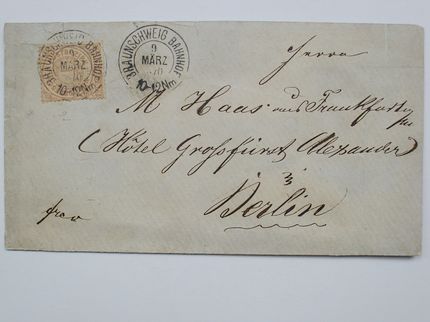 BRAUNSCHWEIG BAHNHOF
9
MÄRZ
70
10-12 Nm.
BRAUNSCHWEIG BAHNHOF
9
MÄRZ
70
10-12 Nm.
Herrn
M Haas aus Frankfurt
(Hôtel Grossfürst Alexander)
Berlin
frco